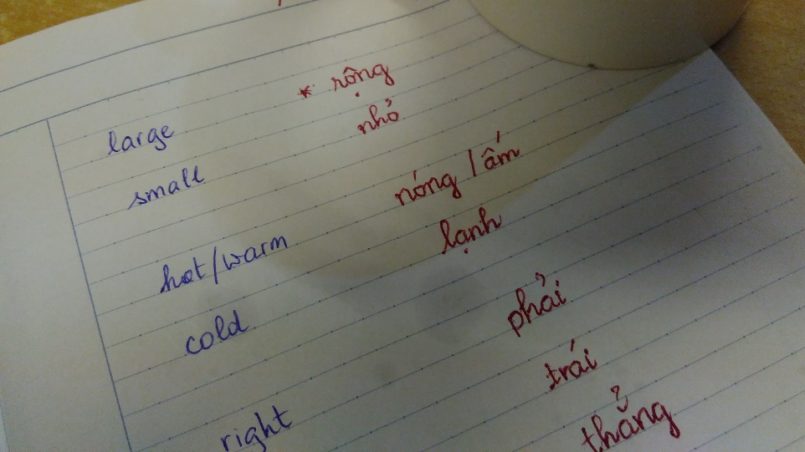 large * rộng
small nhỏ
hot/warm nóng / ấm
cold lạnh
right phải
trái
thẳng